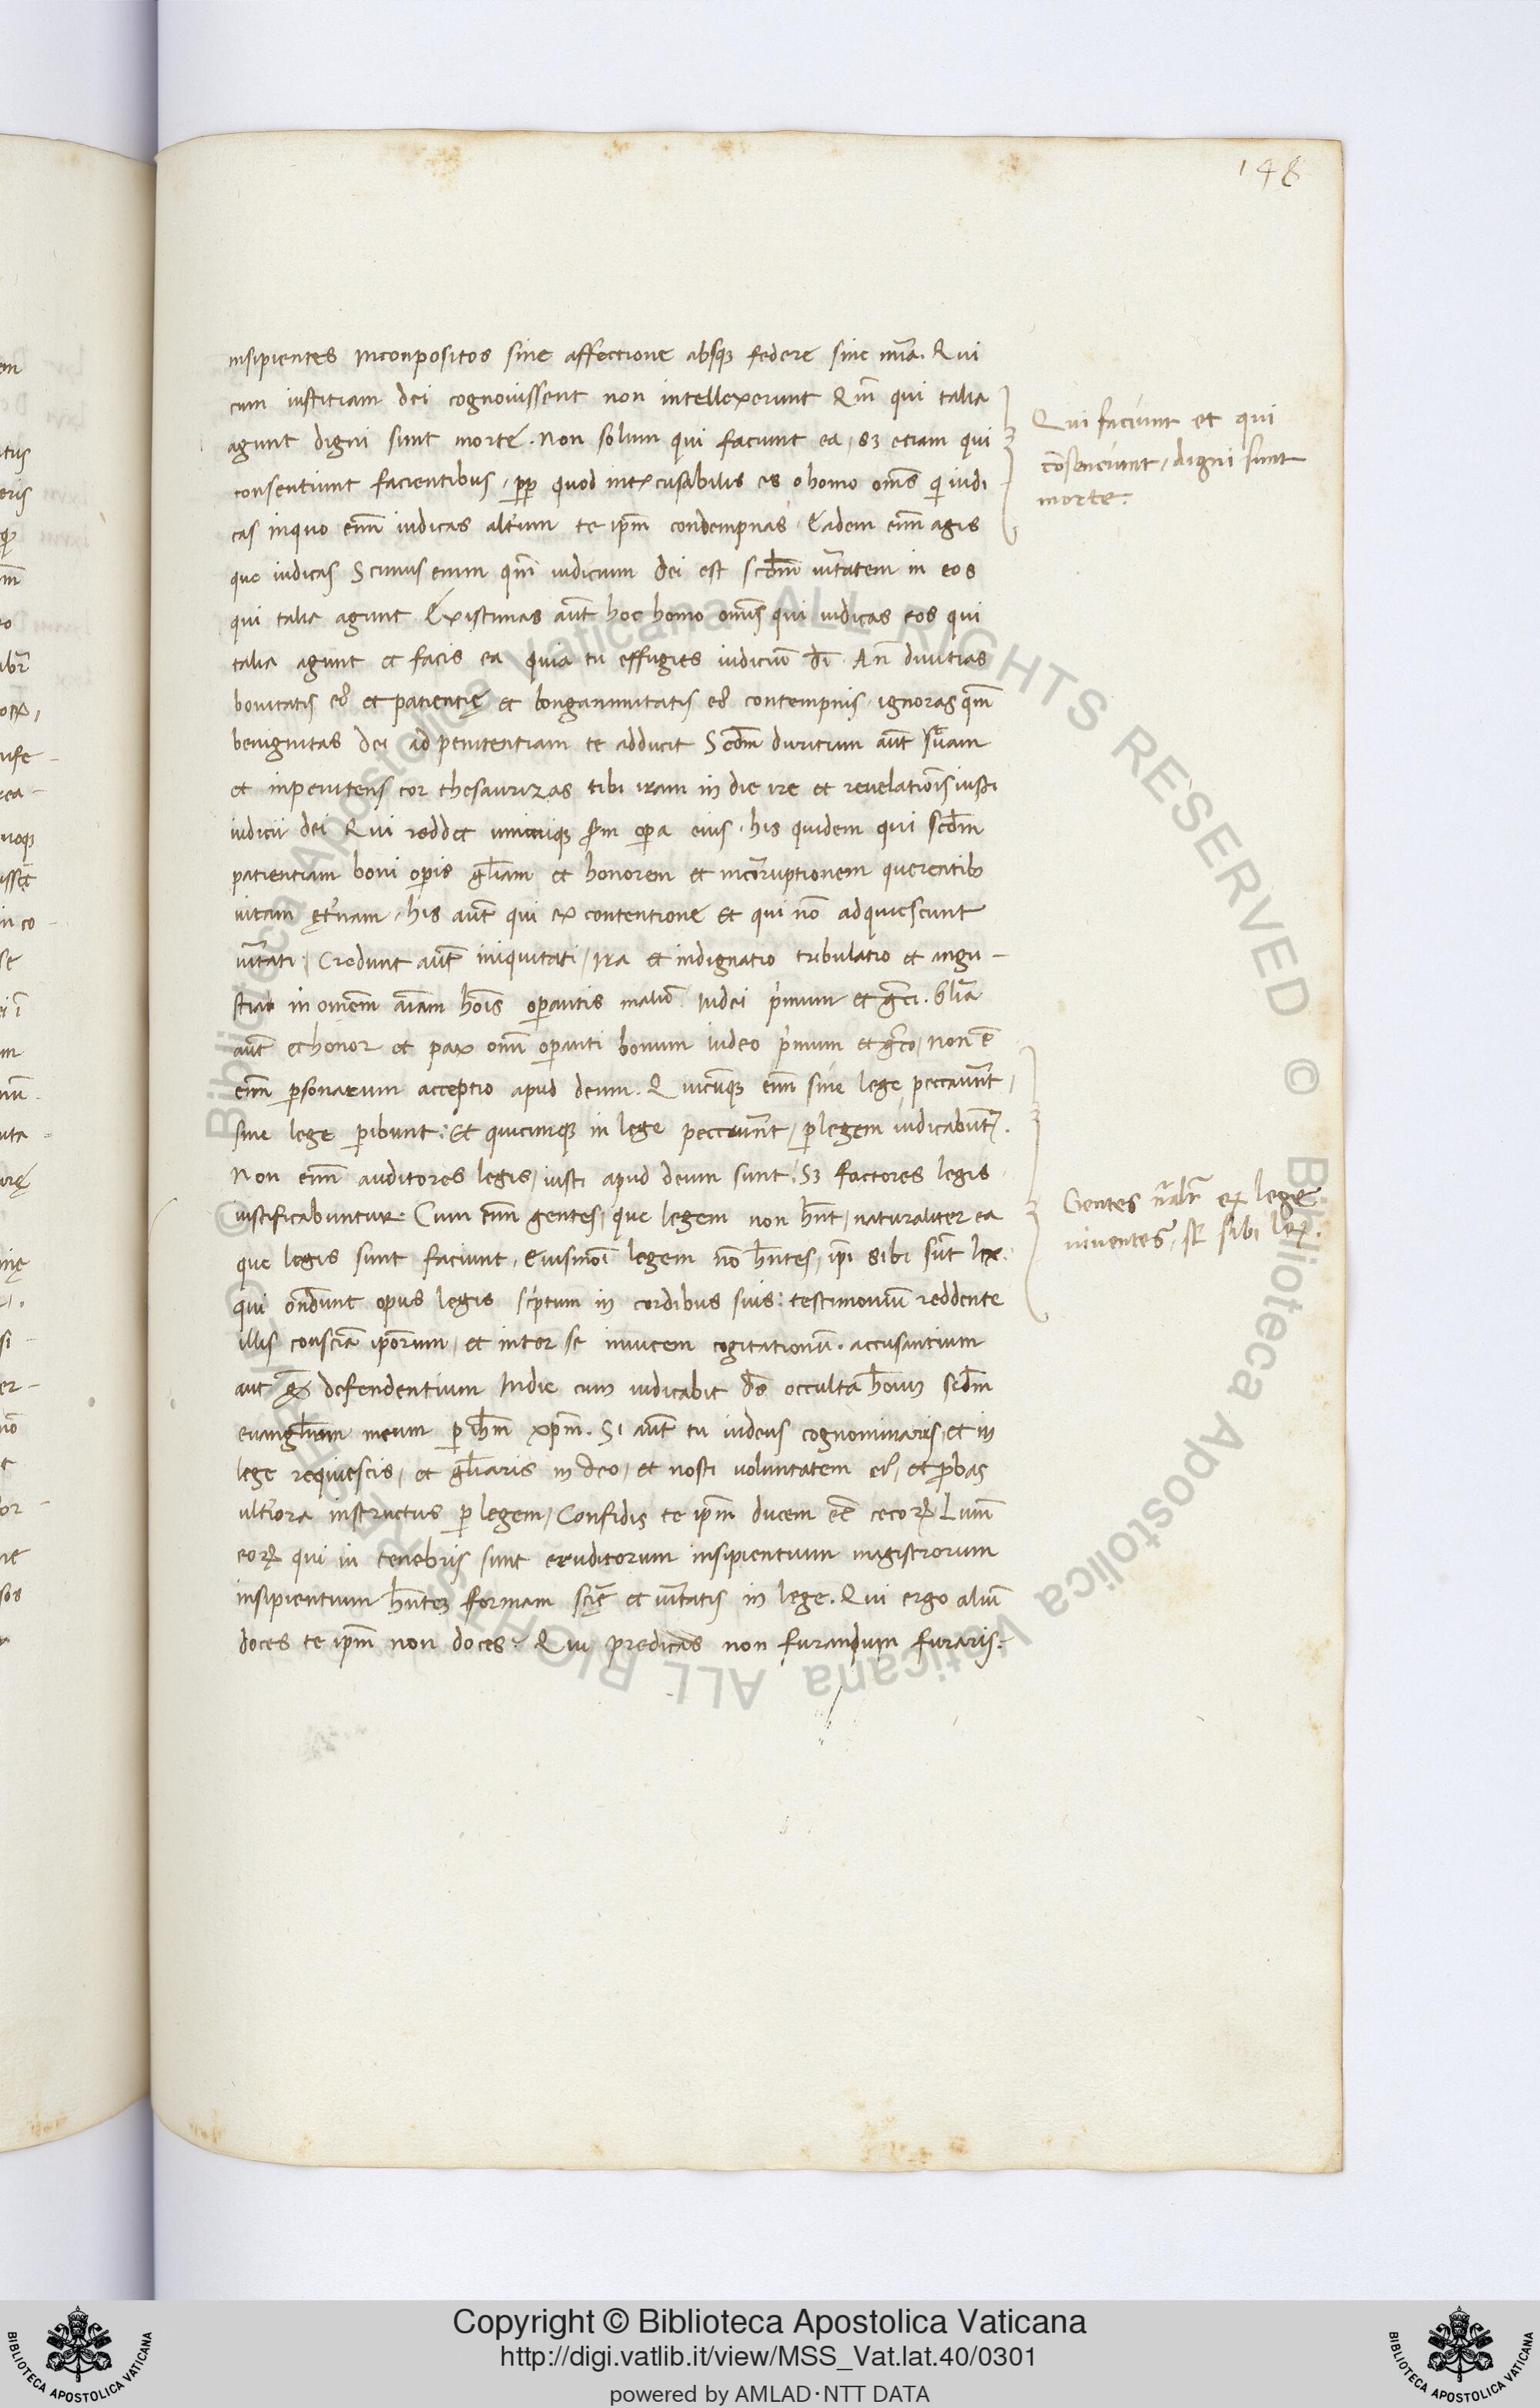 148
insipientes inconpositos sine affectione absq; federe sine mīa. Qui
cum iustitiam dei cognouissent non intellexerunt Qm̄ qui talia
agunt digni sunt morte. Non solum qui faciunt ea, sʒ etiam qui
consentiunt facientibus, pp quod inexcusabilis es o homo om̄s q iudi
cas inquo enī iudicas alt'um te ip̄m condempnas Eadem enī agis
que iudicas Scimus enim qm̄ iudicium dei est scd̄m uītatem in eos
qui talia agunt Existimas aūt hoc homo om̄is qui iudicas eos qui
talia agunt et facis ea quia tu effugies iudiciū dī An diuitias
bonitatis ei' et patientię et longanimitatis ei' contempnis ignoras qm̄
benignitas dei ad penitentiam te adducit Scd̄m duritium aūt tuam
et inpenitens cor thesaurizas tibi iram in die ire et reuelatiōis iusti
iudicii dei Qui reddet unicuiq; s̄m opa eius. his quidem qui scd̄m
patientiam boni opis gl̄iam et honorem et incorruptionem querentib
uitam ęt'nam. his aūt qui ex contentione et qui nō adquiescunt
uītati, Credunt aūt iniquitati, ira et indignatio tribulatio et angu-
stia in omēm aīam hōis opantis malū. Iudei p'mum et greci. Gl̄ia
aūt et honor et pax omī opanti bonum iudeo p'mum et greco, non ē
enī psonarum acceptio apud deum. Quicūq; enī sine lege peccauer̄t,
sine lege pibunt: Et quicumq; in lege peccauer̄t, p legem iudicabunt'.
Non enī auditores legis, iusti apud deum sunt: Sʒ factores legis
iustificabuntur. Cum enī gentes, que legem non hn̄t, naturaliter ea
que legis sunt faciunt, Eiusmōi legem nō hn̄tes, ip̄i sibi sūt lex.
qui on̄dunt opus legis sc'ptum in cordibus suis: testimoniū reddente
illis consciā ip̄orum, et inter se inuicem cogitationū. accusantium
aut defendentium In die cum iudicabit ds̄ occulta hōium scd̄m
euangl̄ium meum p ih̄m xp̄m. Si aūt tu iudeus cognominaris, et in
lege requiescis, et gl̄iaris in deo, et nosti uoluntatem ei', et pbas
ult'iora instructus p legem, Confidis te ip̄m ducem eē cecoꝝ Lum̄
eoꝝ qui in tenebris sunt eruditorum insipientium magistrorum
insipientium hn̄tem formam scīę et uītatis in lege. Qui ergo aliū
doces te ip̄m non doces. Qui predicas non furandum furaris.
Qui faciunt et qui
cōsenciunt, digni sunt
morte.
Gentes nālr̄ ex lege
uiuentes, st sibi lex.
Copyright © Biblioteca Apostolica Vaticana
http://digi.vatlib.it/view/MSS_Vat.lat.40/0301
powered by AMLAD·NTT DATA
BIBLIOTECA APOSTOLICA VATICANA
BIBLIOTECA APOSTOLICA VATICANA
© Biblioteca Apostolica Vaticana ALL RIGHTS RESERVED © Biblioteca Apostolica Vaticana ALL RIGHTS RESERVED